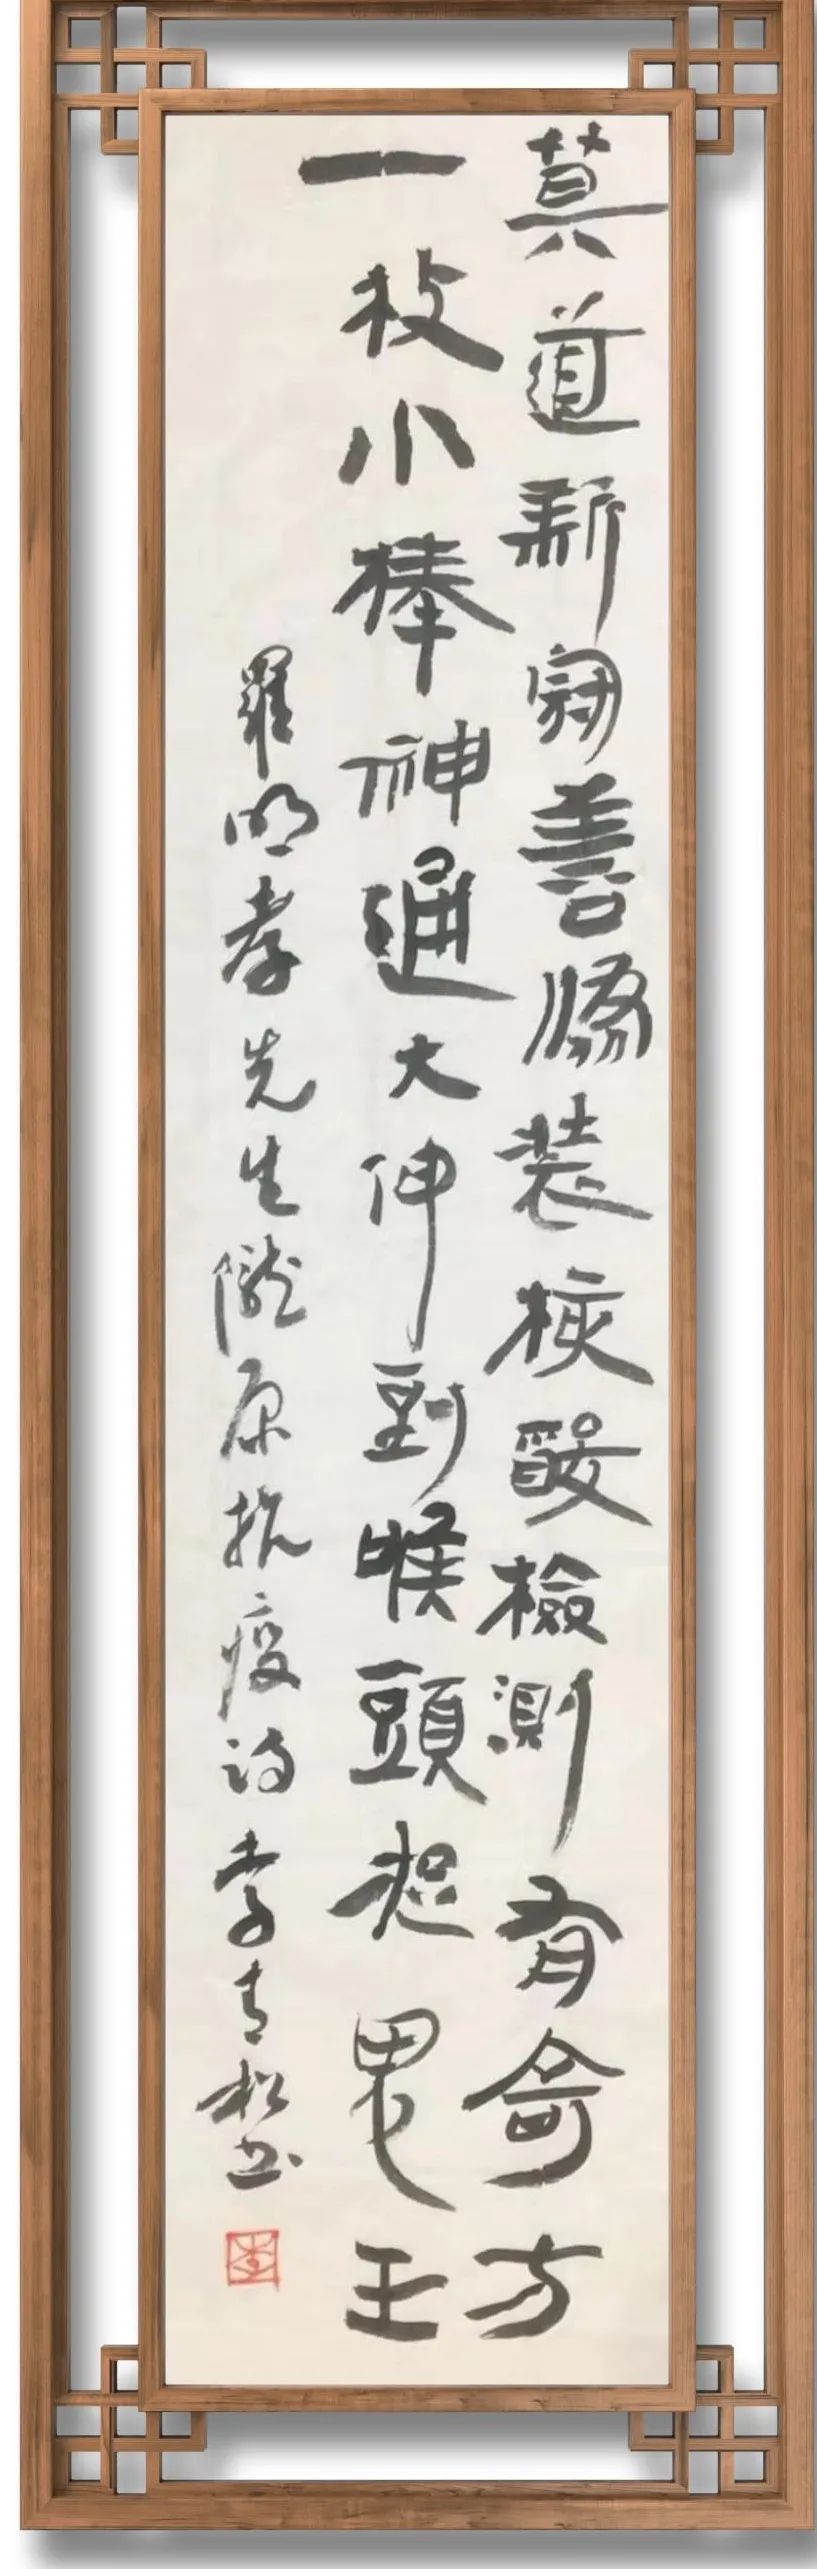 莫道新冠善偽裝核酸檢測有奇方
一枚小棒神通大伸到喉頭捉鬼王
羅明孝先生隴原抗疫詩李青松书